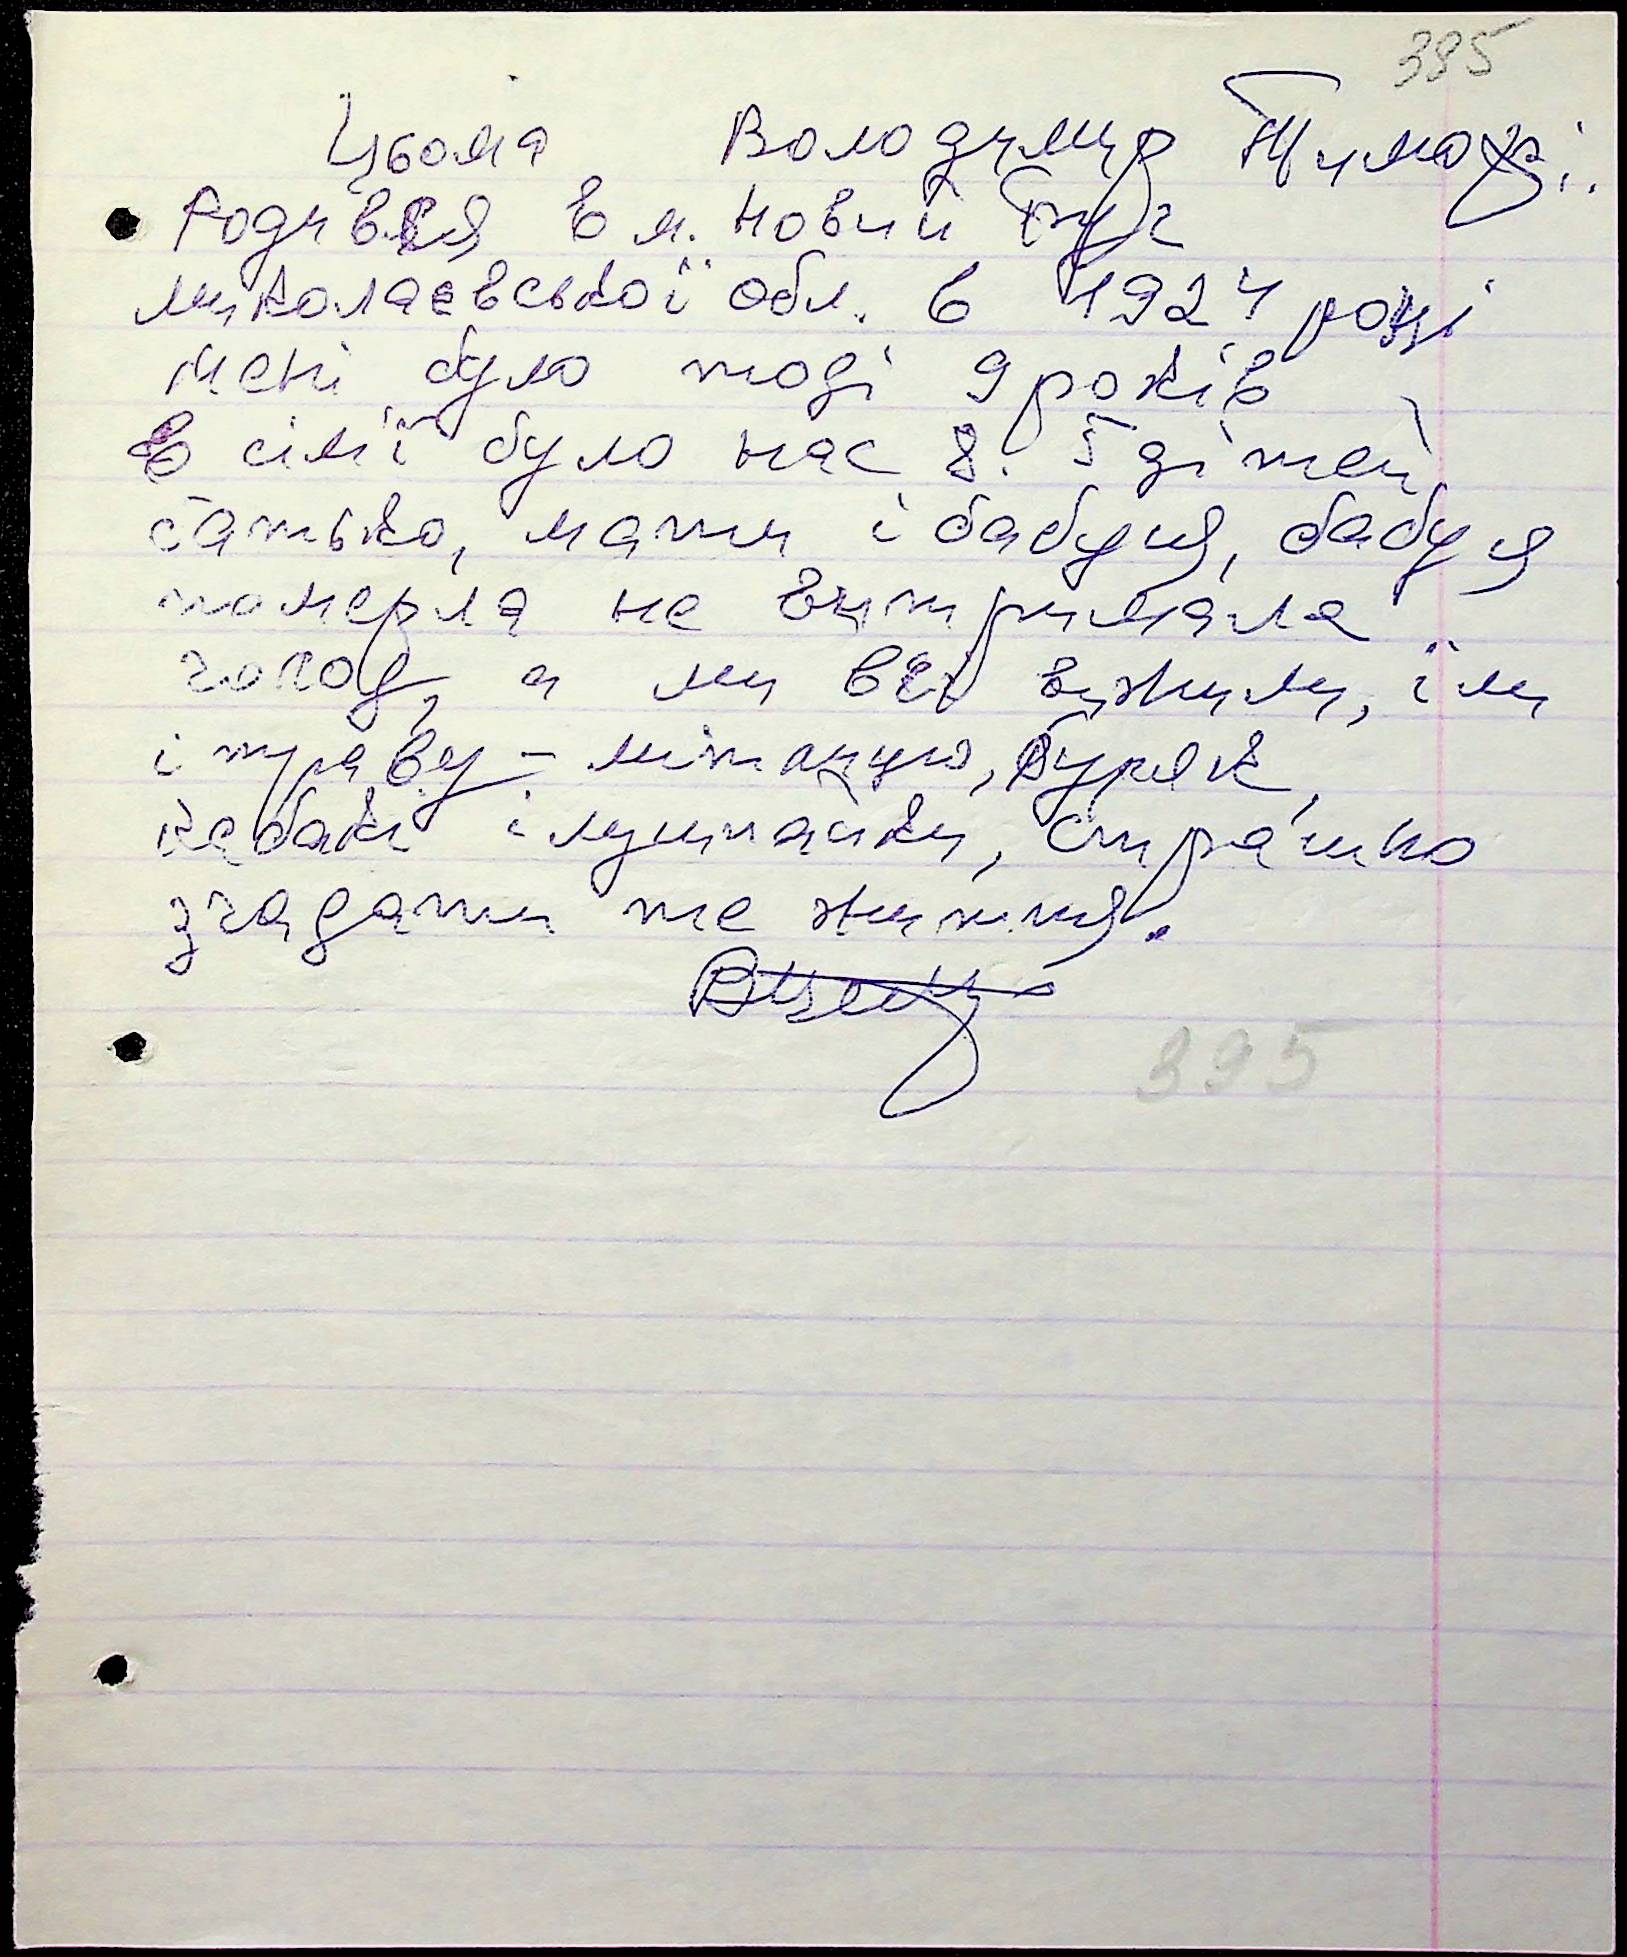 395
Цьома Володимир Тимофі..
Родився в м. Новий Буг
миколаєвської обл. в 1924 році
Мені було тоді 9 років
В сімї було нас 8. 5 дітей,
батько, мати і бабуця, бабуця
померла не витримала
голод, а ми всі вижили, їли
і траву - митацю, буряк,
кабак і лушпайки, страшно
згадати те життя.
395